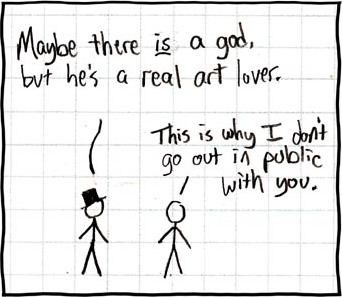 Maybe there is a god,
but he's a real art lover.
This is why I don't
go out in public
with you.